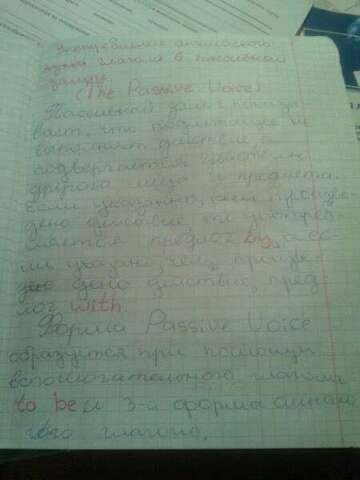 Употребление английского
глагола в пассивном
залоге
(The Passive Voice)
Пассивный залог показы
вает, что подлежащее не
выполняет действие, а
подвергается
другого лица и предмета.
Если указание, кем произве
дено действие то употреб
ляется предлог by, а ес
ли указано, чем произве
дено действие, пред-
лог with
Форма Passive Voice
образуется при помощи
вспомогательного глагола
to be и 3-й формы смысло
вого глагола.